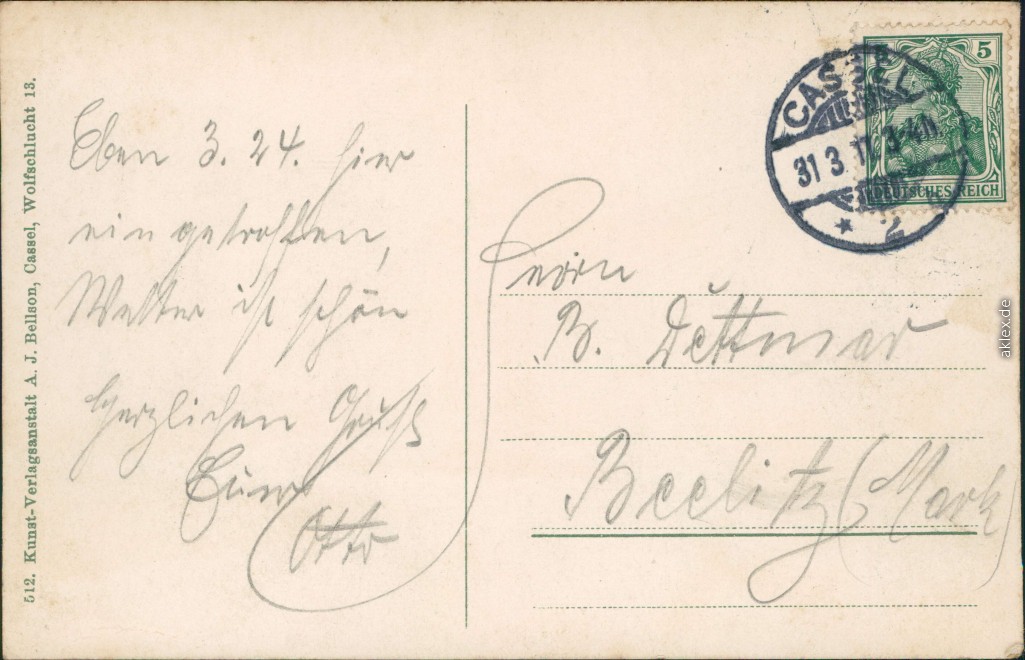 512. Kunst-Verlagsanstalt A. J. Bellson, Cassel, Wolfschlucht 13.
Eben 3.24. hier
eingetroffen,
Wetter ist schön
Herzlichen Gruß
Euer
Otto
5
DEUTSCHES REICH
CASSEL
31 3 11 3-4N
* 2
Herrn
B. Dettmar
Beelitz (Mark)
aklex.de